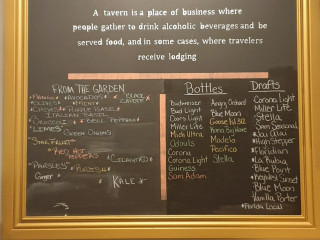 A tavern is a place of business where
people gather to drink alcoholic beverages and be
served food, and in some cases, where travelers
receive lodging
FROM THE GARDEN
Mangos * Avocados * Black
Olives * Mint * Cherry
Chives * Purple Basil
Italian Basil
* Bell Peppers
*Limes* Green Onions
Star Fruit
*Red Hot
Peppers *Cilantro*
*Parsley*
Ginger
Kale
Bottles
Budweiser
Bud Light
Coors Light
Miller Lite
Mich Ultra
Odouls
Corona
Corona Light
Guiness
Sam Adam
Angry Orchard
Blue Moon
Goose Isl 312
Kona Big Wave
Modelo
Pacifico
Stella
Drafts
Corona Light
Miller Lite
Stella
Sam Seasonal
*Jai Alai
*High Stepper
*Floridian
*La Rubia
Blue Point
*Key West Sunset
Blue Moon
Vanilla Porter
*Florida Local